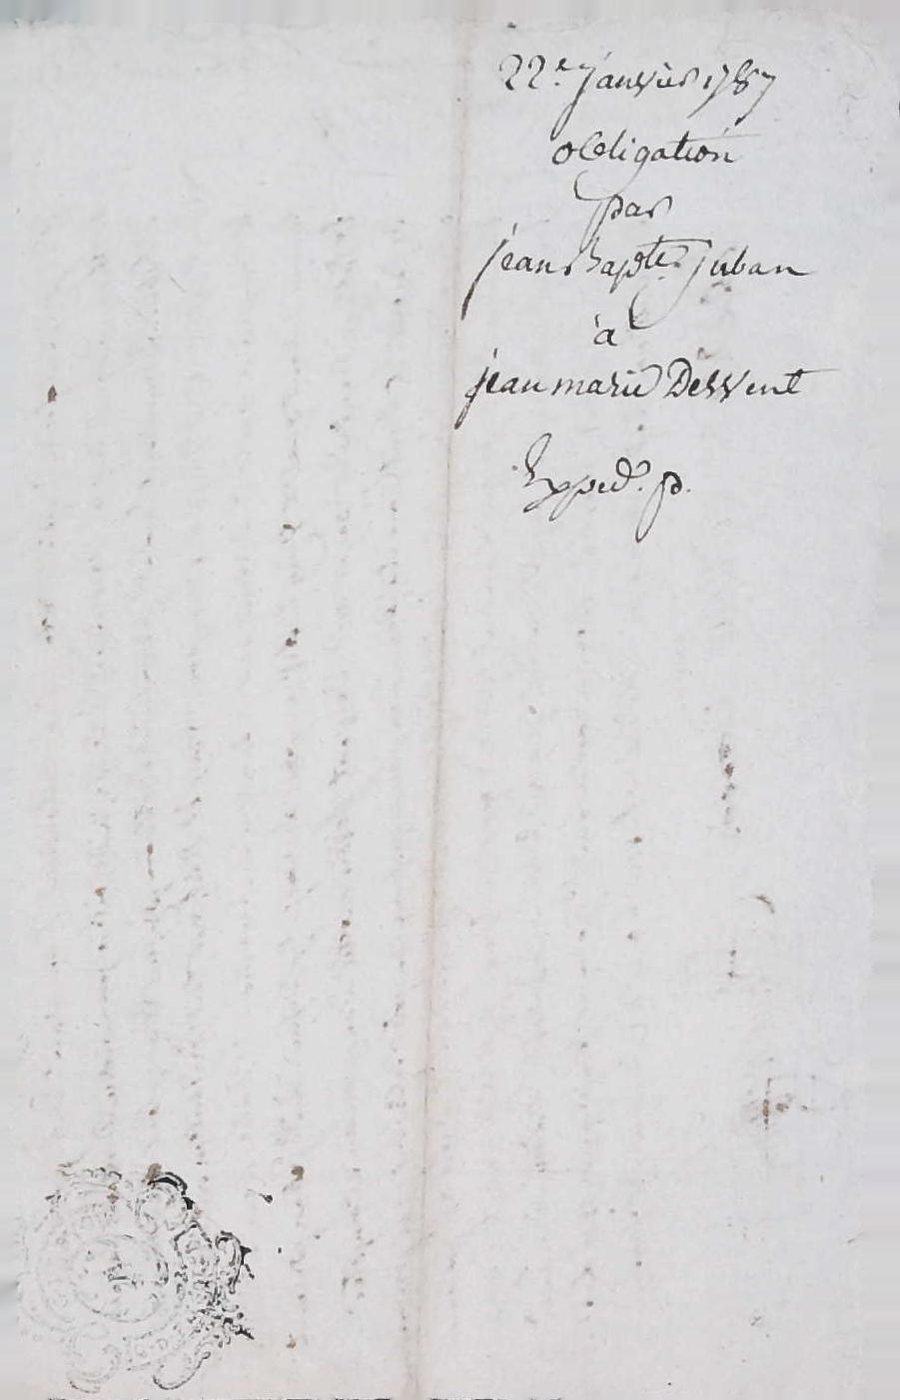 22e Janvier 1787
obligation
par
jean Bapte Juban
à
jean marie Dessent
Exped. p.